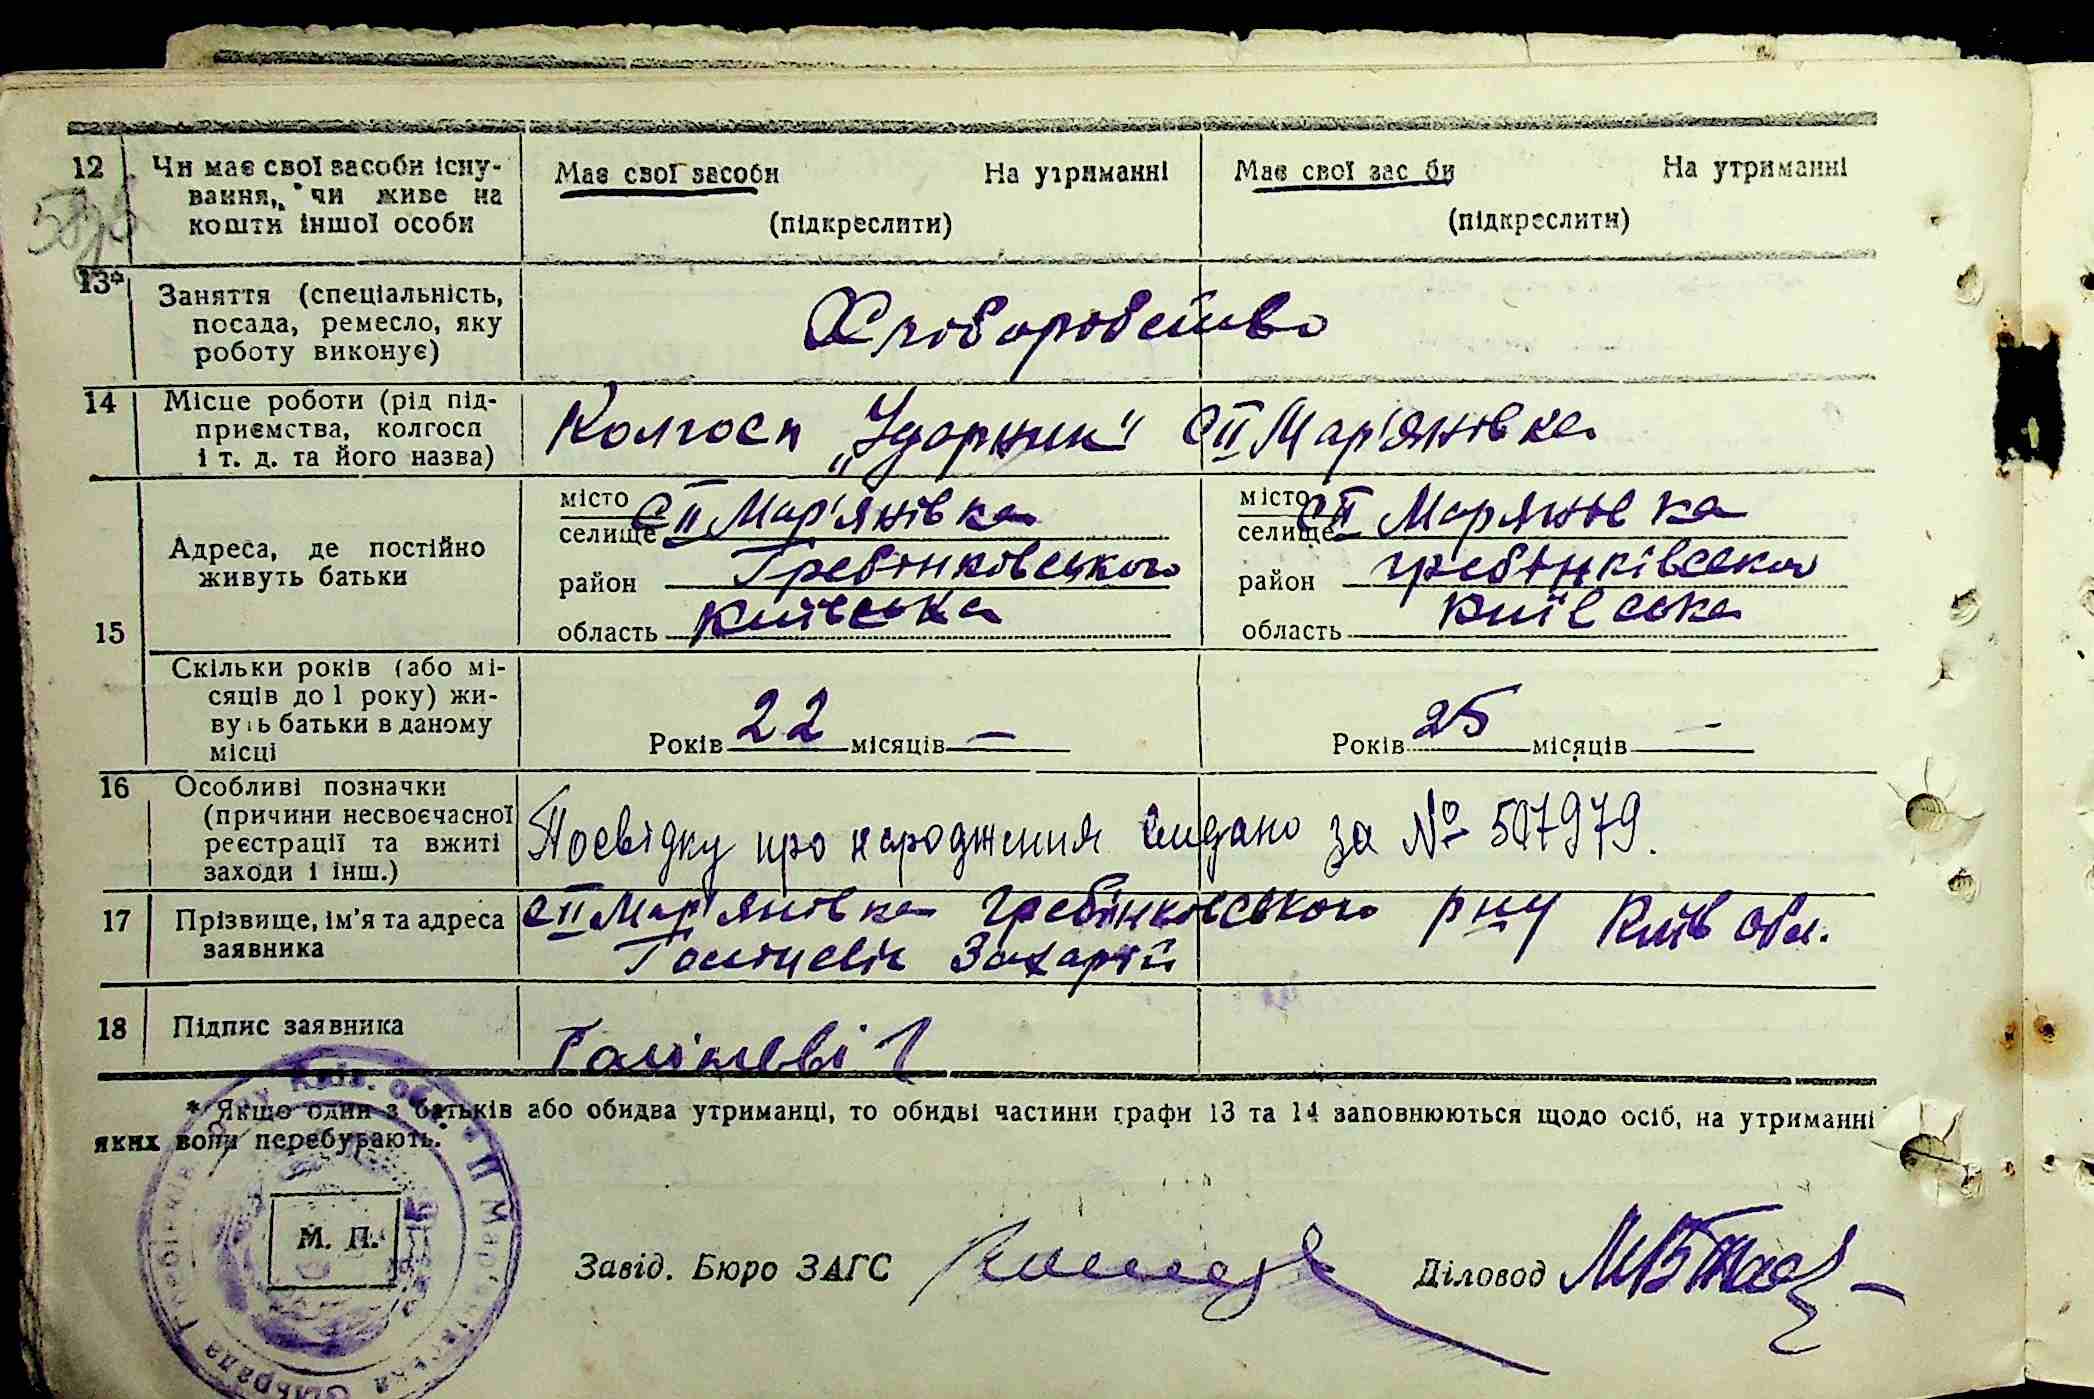 12 Чи має свої засоби існу-
вання, чи живе на
кошти іншої особи
Має свої засоби На утриманні
(підкреслити)
Має свої зас би На утриманні
(підкреслити)
13* Заняття (спеціальність,
посада, ремесло, яку
роботу виконує)
Хліборобство
14 Місце роботи (рід під-
приємства, колгосп
і т. д. та його назва)
Колгосп „Ударник" с ІІ Мар'янівка
15 Адреса, де постійно
живуть батьки
місто
селище с ІІ Мар'янівка
район Гребінковського
область Київська
місто
селище с ІІ Марянівка
район гребінківського
область Київська
Скільки років (або мі-
сяців до 1 року) жи-
вуть батьки в даному
місці
Років 22 місяців —
Років 25 місяців —
16 Особливі позначки
(причини несвоєчасної
реєстрації та вжиті
заходи і інш.)
Посвідку про народження видано за № 507979.
17 Прізвище, ім'я та адреса
заявника
с ІІ Мар'янівка Гребінковського р-ну Київ обл.
Захарій
18 Підпис заявника
* Якщо один з батьків або обидва утриманці, то обидві частини графи 13 та 14 заповнюються щодо осіб, на утриманні
яких вони перебувають.
М. П.
Завід. Бюро ЗАГС
Діловод